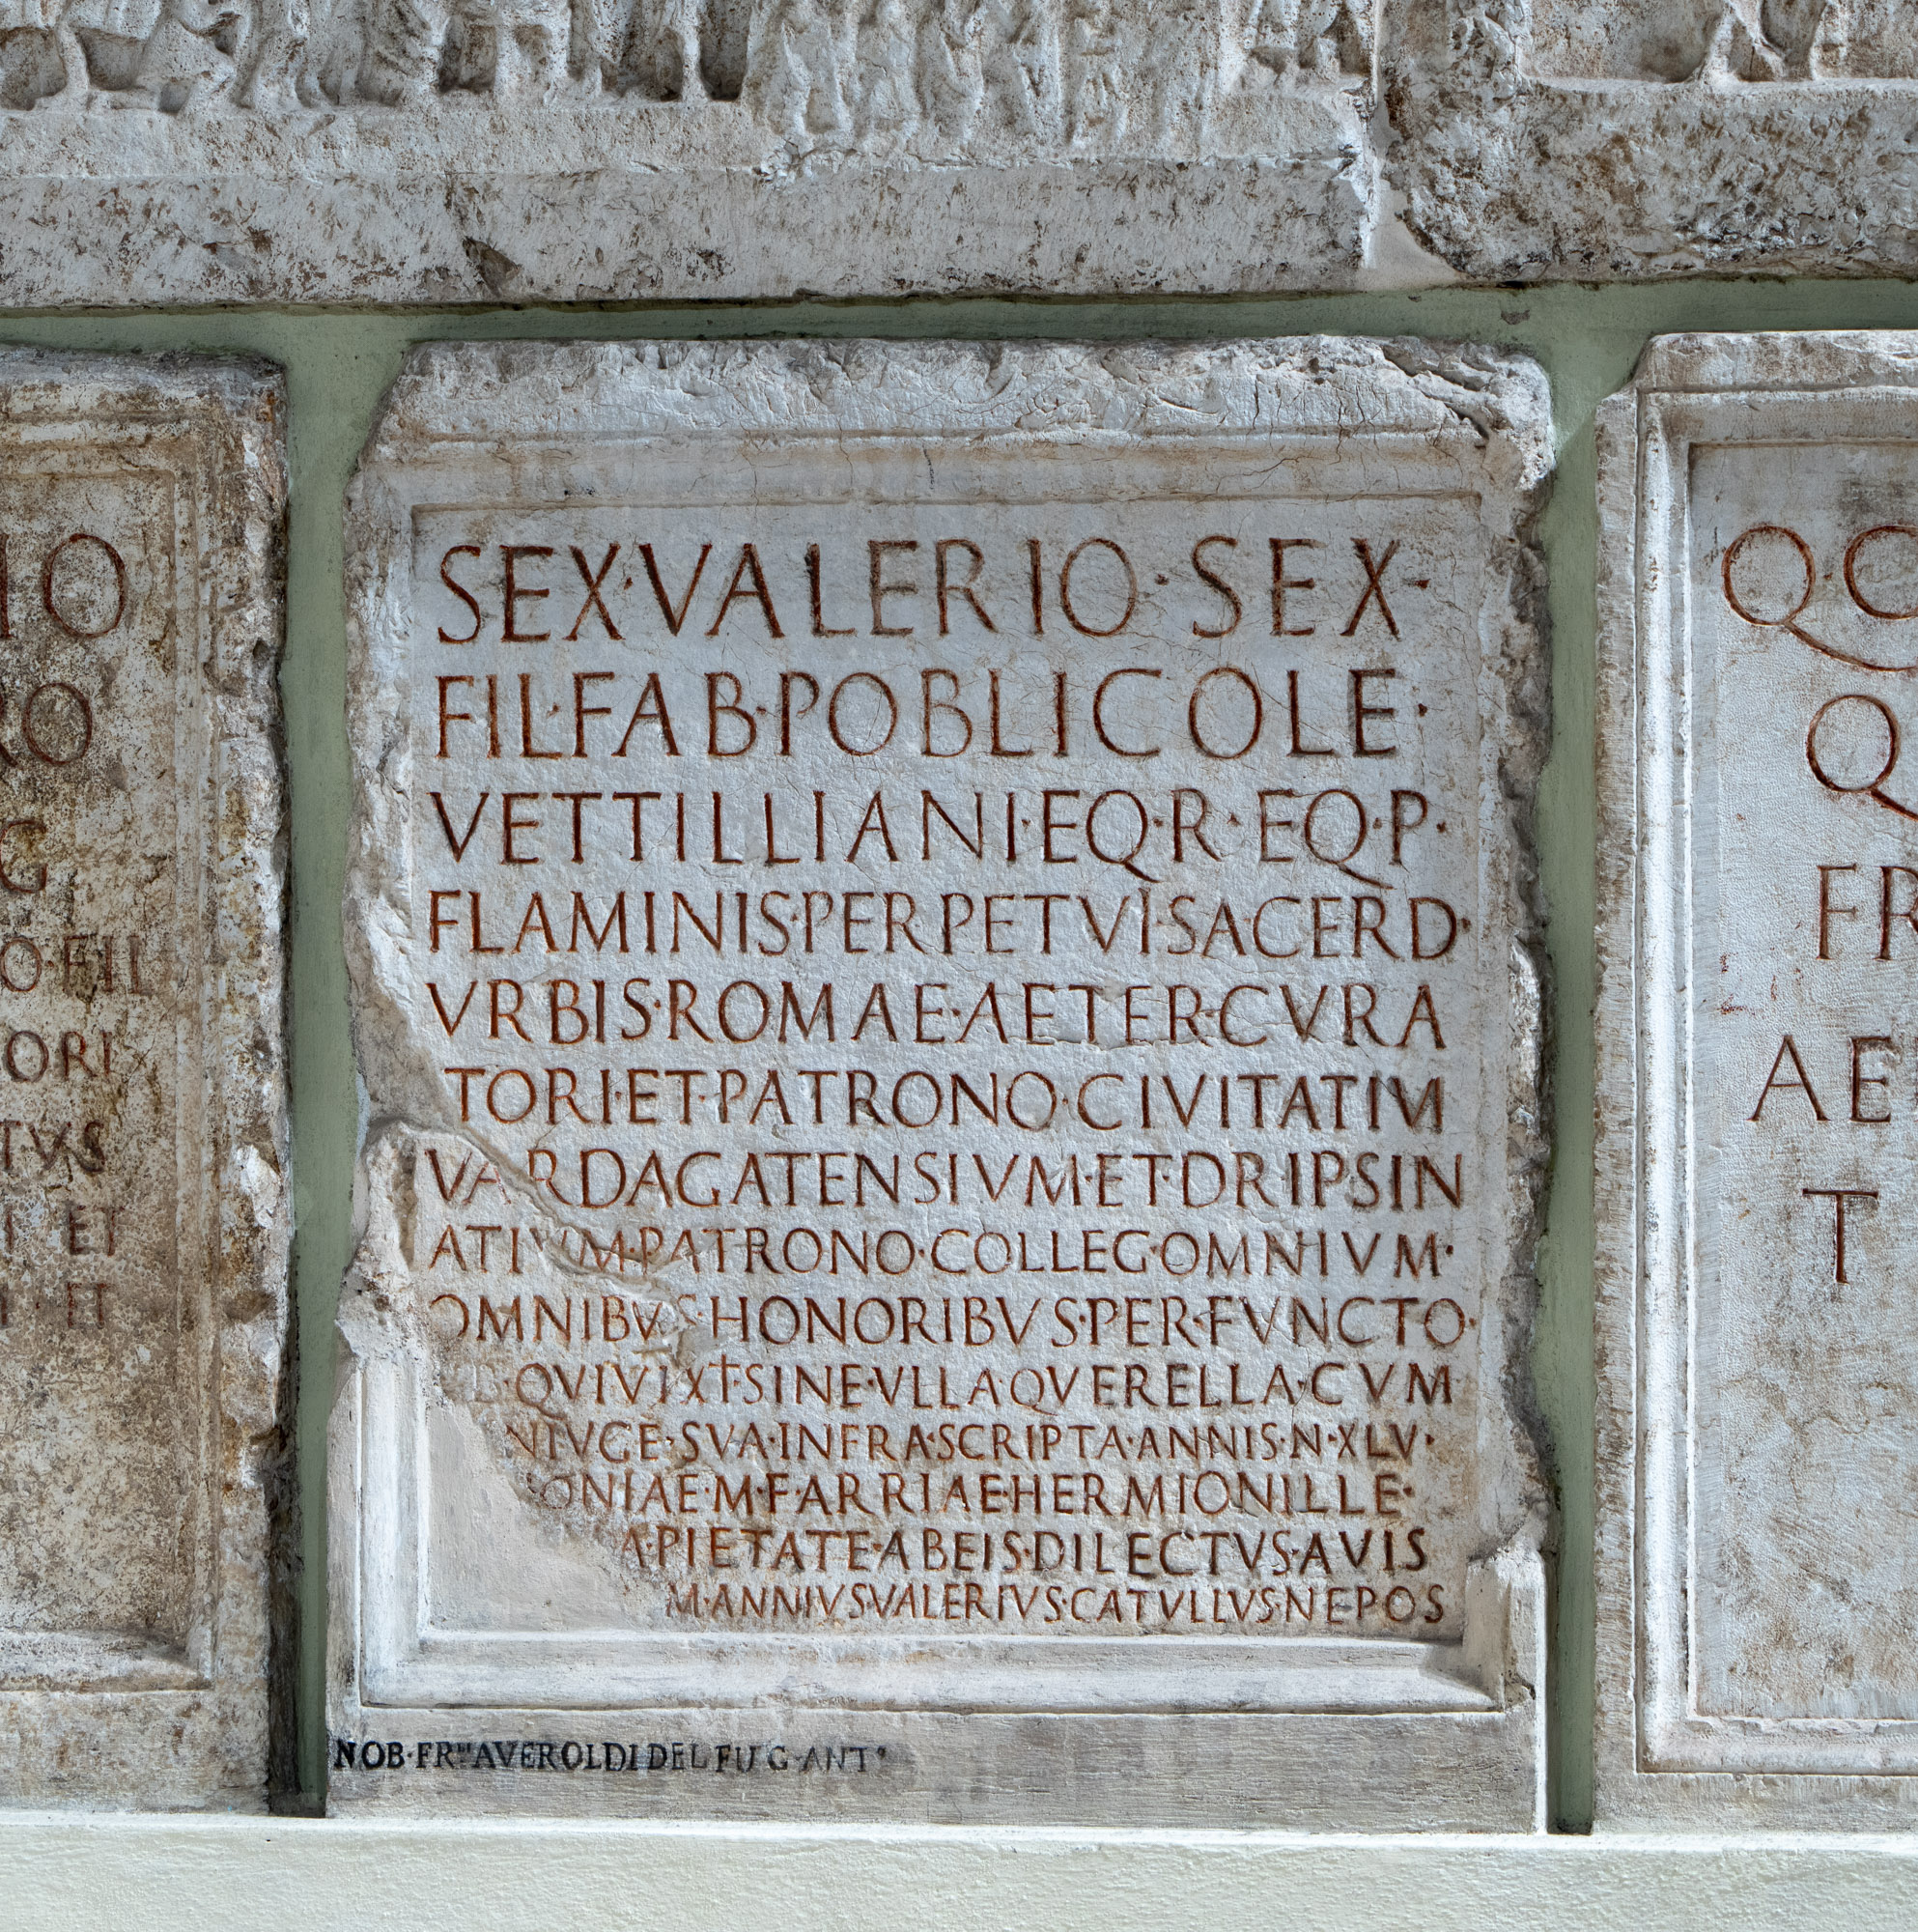 IO
RO
G
O·FIL
ORI
TVS
ET
ET
SEX·VALERIO·SEX·
FIL·FAB·POBLICOLE·
VETTILLIANI·EQ·R·EQ·P·
FLAMINIS·PERPETVI·SACERD·
VRBIS·ROMAE·AETER·CVRA
TORI·ET·PATRONO·CIVITATIVM
VARDAGATENSIVM·ET·DRIPSIN
ATIVM·PATRONO·COLLEG·OMNIVM·
OMNIBVS·HONORIBVS·PER·FVNCTO·
QVI·VIXT·SINE·VLLA·QVERELLA·CVM
NIVGE·SVA·INFRA·SCRIPTA·ANNIS·N·XLV·
ONIAE·M·F·ARRIAE·HERMIONILLE·
A·PIETATE·ABEIS·DILECTVS·AVIS
M·ANNIVS·VALERIVS·CATVLLVS·NEPOS
NOB·FR AVEROLDI DEL FU G·ANT°
Q·C
Q
FR
AE
T